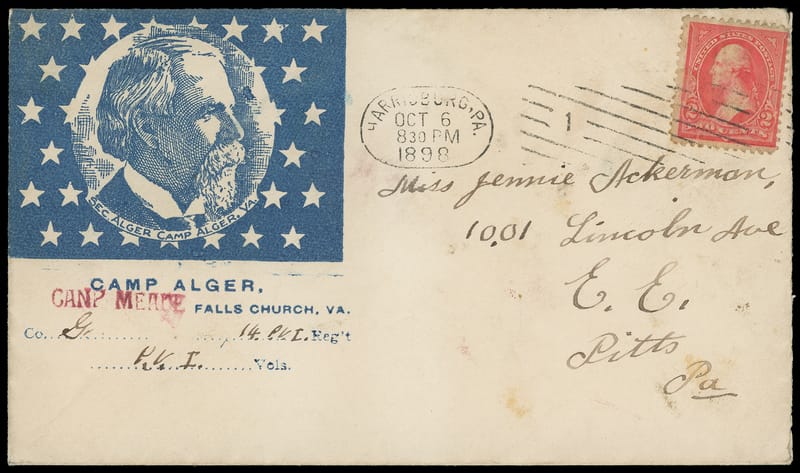 SEC ALGER CAMP ALGER, VA.
CAMP ALGER,
CAMP MEADE
FALLS CHURCH, VA.
Co. G. 14. P.V.I. Reg't
P.V.I. Vols.
HARRISBURG, PA.
OCT 6
830 PM
1898
1
UNITED STATES POSTAGE
2 2
TWO CENTS
Miss Jennie Ackerman,
1001 Lincoln Ave
E. E.
Pitts
Pa